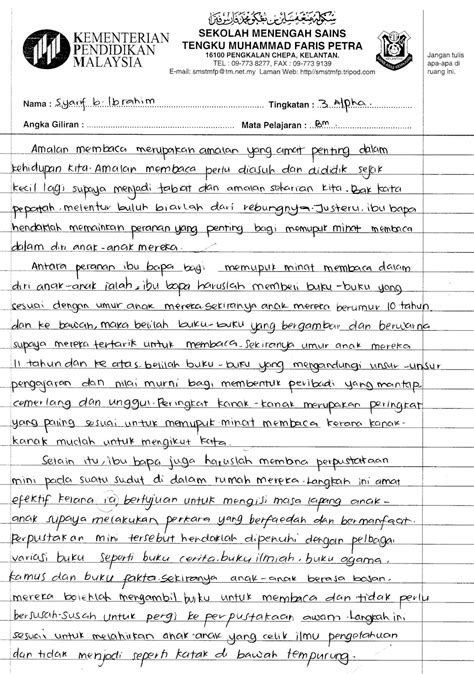 KEMENTERIAN
PENDIDIKAN
MALAYSIA
SEKOLAH MENENGAH SAINS
TENGKU MUHAMMAD FARIS PETRA
16100 PENGKALAN CHEPA, KELANTAN.
TEL : 09-773 8277, FAX : 09-773 9139
E-mail: smstmfp@tm.net.my Laman Web: http//smstmfp.tripod.com
Jangan tulis
apa-apa di
ruang ini.
Nama : Syarif b. Ibrahim Tingkatan : 3 Alpha
Angka Giliran : Mata Pelajaran : BM
Amalan membaca merupakan amalan yang amat penting dalam
kehidupan kita. Amalan membaca perlu diasuh dan dididik sejak
kecil lagi supaya menjadi tabiat dan amalan seharian kita. Bak kata
pepatah, melentur buluh biarlah dari rebungnya. Justeru, ibu bapa
hendaklah memainkan peranan yang penting bagi memupuk minat membaca
dalam diri anak-anak mereka.
Antara peranan ibu bapa bagi memupuk minat membaca dalam
diri anak-anak ialah, ibu bapa haruslah membeli buku-buku yang
sesuai dengan umur anak mereka. Sekiranya anak mereka berumur 10 tahun
dan ke bawah, maka belilah buku-buku yang bergambar dan berwarna
supaya mereka tertarik untuk membaca. Sekiranya umur anak mereka
11 tahun dan ke atas, belilah buku-buku yang mengandungi unsur-unsur
pengajaran dan nilai murni bagi membentuk peribadi yang mantap,
cemerlang dan unggul. Peringkat kanak-kanak merupakan peringkat
yang paling sesuai untuk memupuk minat membaca kerana kanak-
kanak mudah untuk mengikut kata.
Selain itu, ibu bapa juga haruslah membina perpustakaan
mini pada suatu sudut di dalam rumah mereka. Langkah ini amat
efektif kerana ia bertujuan untuk mengisi masa lapang anak-
anak supaya melakukan perkara yang berfaedah dan bermanfaat.
Perpustakan mini tersebut hendaklah dipenuhi dengan pelbagai
variasi buku seperti buku cerita, buku ilmiah, buku agama,
kamus dan buku fakta. Sekiranya anak-anak berasa bosan,
mereka bolehlah mengambil buku untuk membaca dan tidak perlu
bersusah-susah untuk pergi ke perpustakaan awam. Langkah ini
sesuai untuk melahirkan anak-anak yang celik ilmu pengetahuan
dan tidak menjadi seperti katak di bawah tempurung.